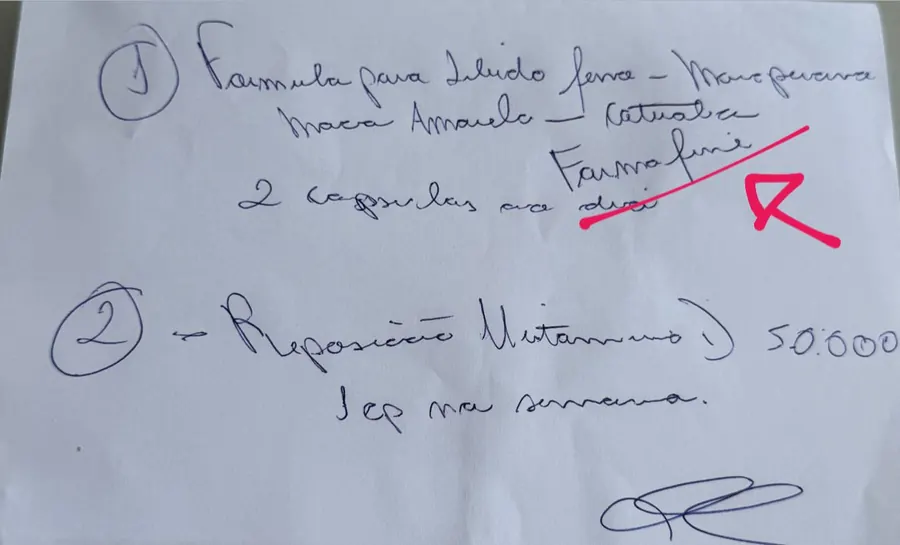 1 Fórmula para Libido fema - Maca peruana
maca Amarela - Catuaba
Farmafine
2 capsulas ao dia
2 - Reposição Vitamina D 50.000
1 cp na semana.